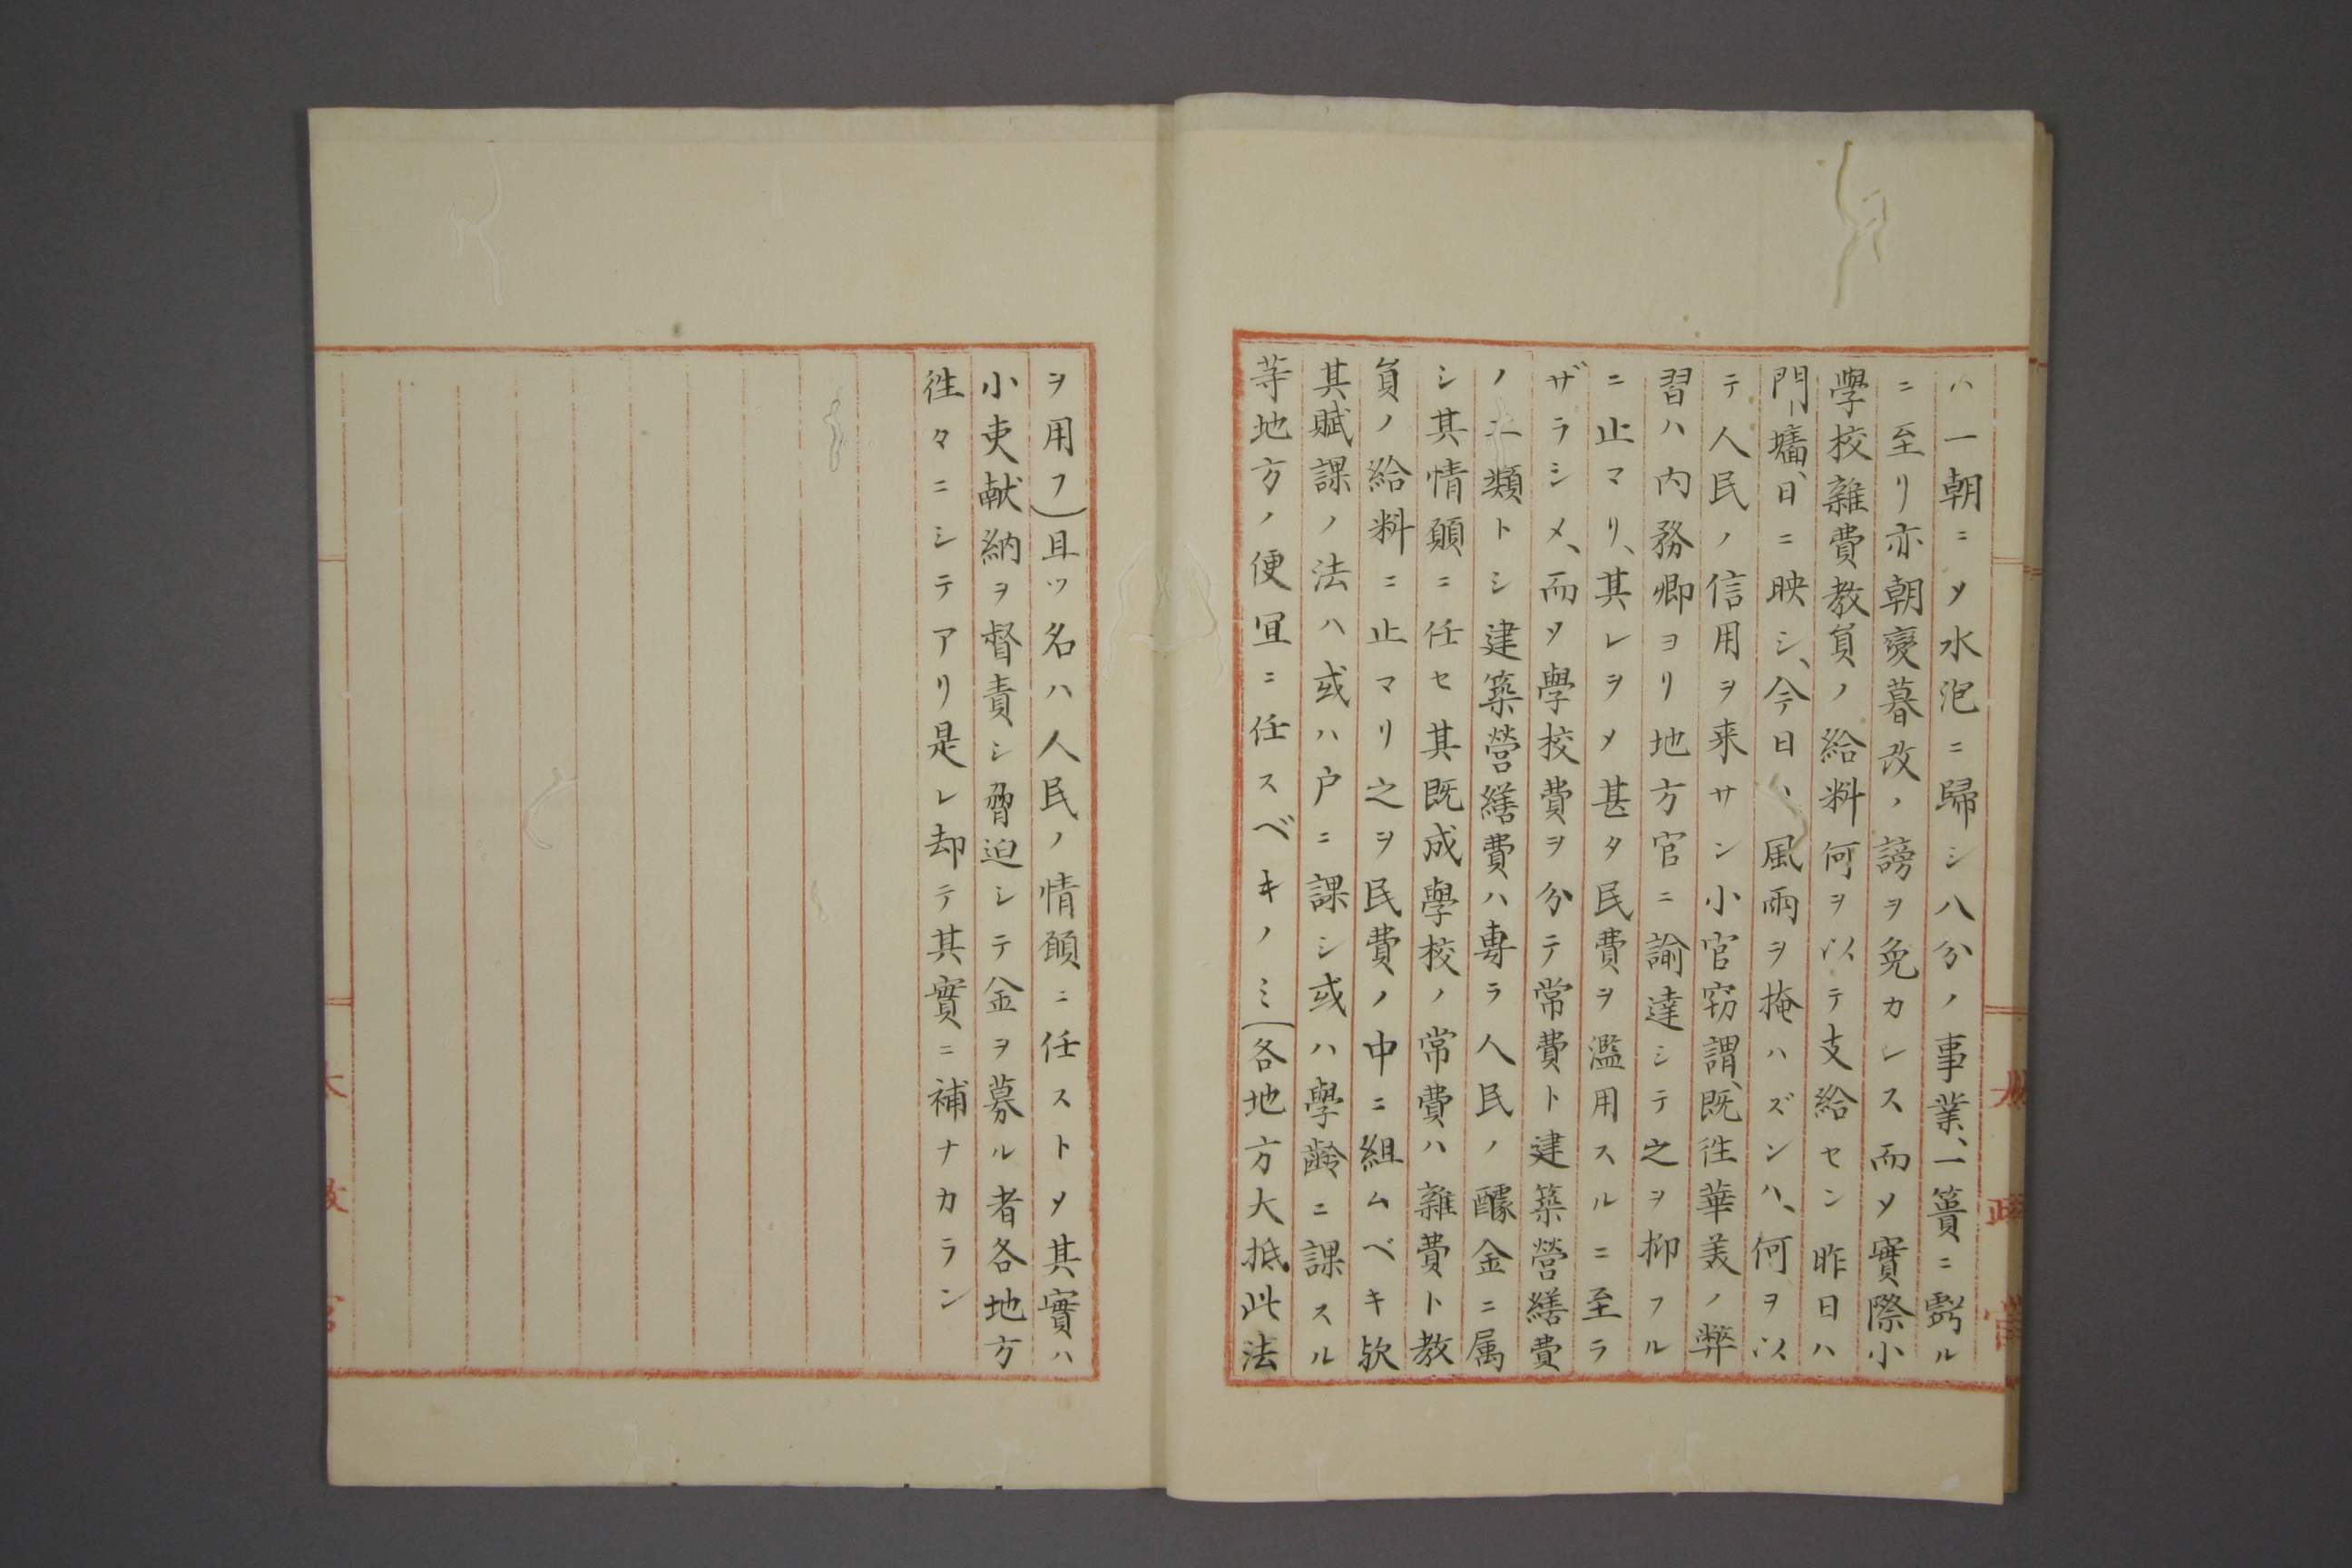 ハ一朝ニ〆水泡ニ歸シ八分ノ事業、一簣ニ虧ル
ニ至リ亦朝變暮改ノ謗ヲ免カレス而〆實際小
學校雜費教員ノ給料何ヲ以テ支給セン昨日ハ
門墻、日ニ映シ、今日ハ風雨ヲ掩ハズンハ、何ヲ以
テ人民ノ信用ヲ来サン小官窃謂、既徃華美ノ弊
習ハ内務卿ヨリ地方官ニ諭達シテ之ヲ抑フル
ニ止マリ、其レヲ〆甚タ民費ヲ濫用スルニ至ラ
ザラシメ、而〆學校費ヲ分テ常費ト建築營繕費
ノ二類トシ建築營繕費ハ専ラ人民ノ醵金ニ属
シ其情願ニ任セ其既成學校ノ常費ハ雜費ト教
員ノ給料ニ止マリ之ヲ民費ノ中ニ組ムベキ欤
其賦課ノ法ハ或ハ户ニ課シ或ハ學齢ニ課スル
等地方ノ便冝ニ任スベキノミ(各地方大抵此法
ヲ用フ)且ツ名ハ人民ノ情願ニ任スト〆其實ハ
小吏献納ヲ督責シ脅迫シテ金ヲ募ル者各地方
徃々ニシテアリ是レ却テ其實ニ補ナカラン
太政官